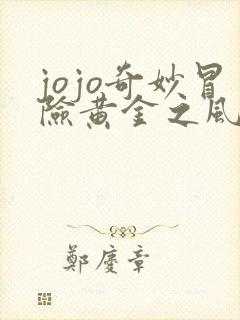 jojo奇妙冒
險黃金之風
鄭慶章